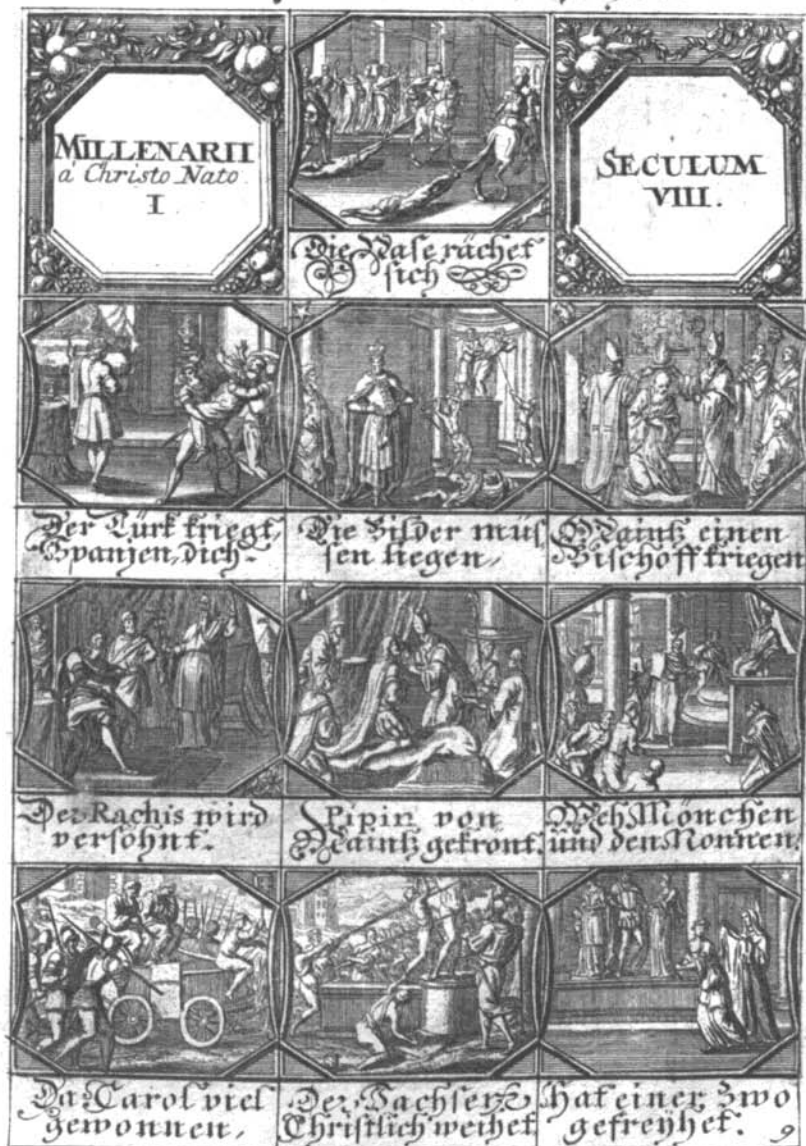 MILLENARII
à Christo Nato
I
SECULUM
VIII.
Die Nase rächet
sich
Der Türk kriegt,
Spanien, dich.
Die Bilder müs
sen liegen,
Maintz einen
Bischoff kriegen
Der Rachis wird
versöhnt.
Pipin von
Maintz gekrönt.
Weh Mönchen
und den Nonnen.
Da Carol viel
gewonnen,
Der Sachsen
Christlich weihet
hat einer zwo
gefreyhet.
9